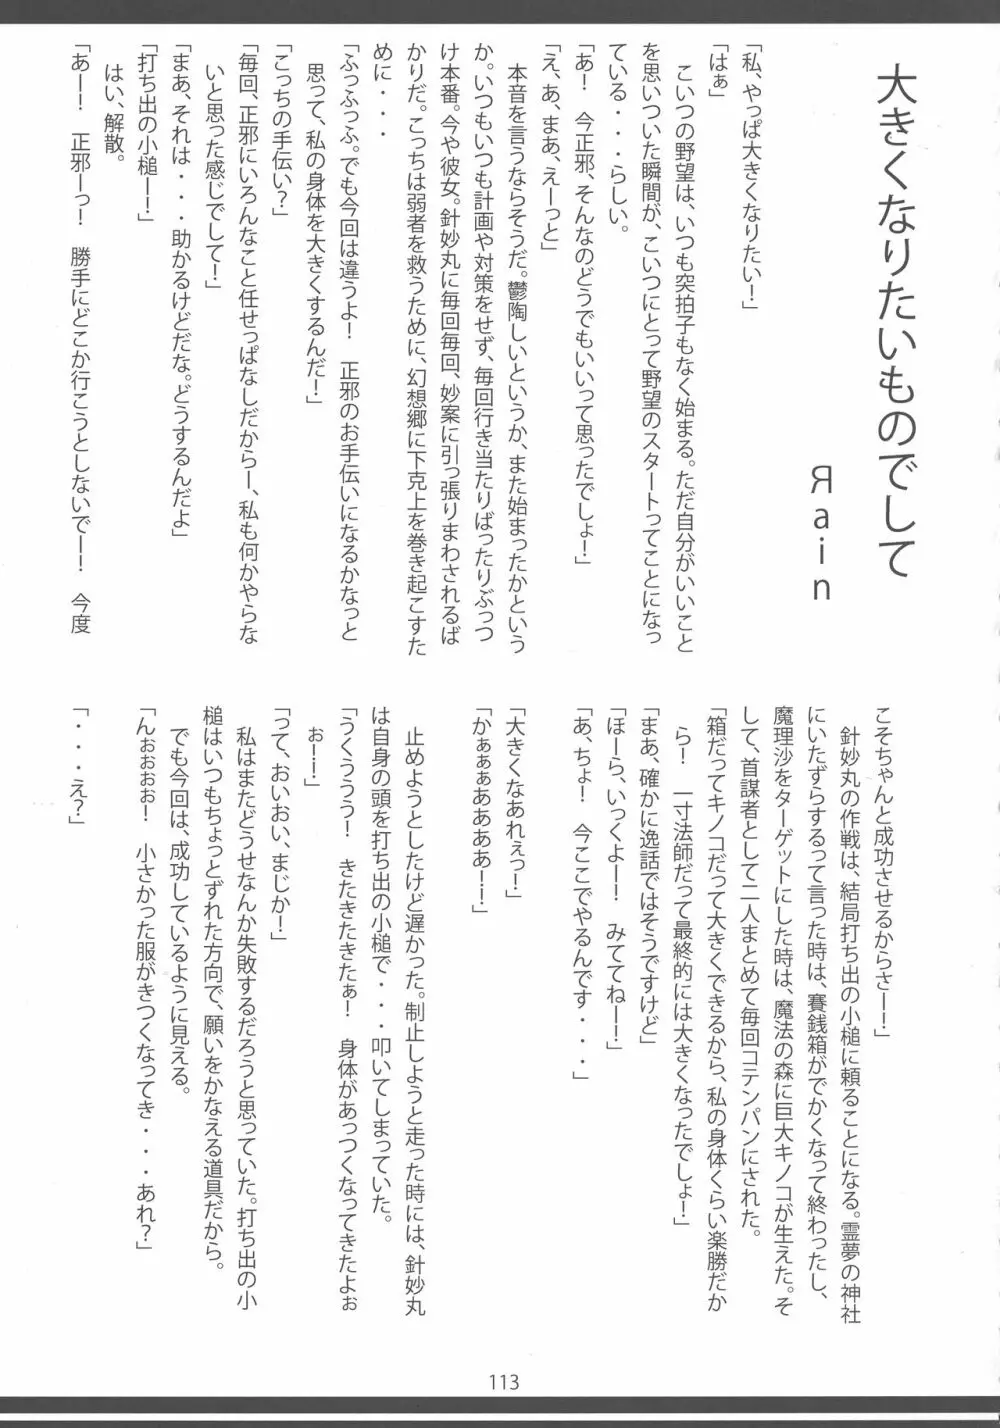 大きくなりたいものでして
Яain
「私、やっぱ大きくなりたい！」
「はぁ」
こいつの野望は、いつも突拍子もなく始まる。ただ自分がいいこと
を思いついた瞬間が、こいつにとって野望のスタートってことになっ
ている・・・らしい。
「あ！　今正邪、そんなのどうでもいいって思ったでしょ！」
「え、あ、まあ、えーっと」
本音を言うならそうだ。鬱陶しいというか、また始まったかという
か。いつもいつも計画や対策をせず、毎回行き当たりばったりぶっつ
け本番。今や彼女。針妙丸に毎回毎回、妙案に引っ張りまわされるば
かりだ。こっちは弱者を救うために、幻想郷に下克上を巻き起こすた
めに・・・
「ふっふっふ。でも今回は違うよ！　正邪のお手伝いになるかなっと
思って、私の身体を大きくするんだ！」
「こっちの手伝い？」
「毎回、正邪にいろんなこと任せっぱなしだからー、私も何かやらな
いと思った感じでして！」
「まあ、それは・・・助かるけどだな。どうするんだよ」
「打ち出の小槌ー！」
はい、解散。
「あー！　正邪ーっ！　勝手にどこか行こうとしないでー！　今度
こそちゃんと成功させるからさー！」
針妙丸の作戦は、結局打ち出の小槌に頼ることになる。霊夢の神社
にいたずらするって言った時は、賽銭箱がでかくなって終わったし、
魔理沙をターゲットにした時は、魔法の森に巨大キノコが生えた。そ
して、首謀者として二人まとめて毎回コテンパンにされた。
「箱だってキノコだって大きくできるから、私の身体くらい楽勝だか
ら！　一寸法師だって最終的には大きくなったでしょ！」
「まあ、確かに逸話ではそうですけど」
「ほーら、いっくよー！　みててねー！」
「あ、ちょ！　今ここでやるんです・・・」
「大きくなあれぇっ！」
「かぁぁぁああああ！！」
止めようとしたけど遅かった。制止しようと走った時には、針妙丸
は自身の頭を打ち出の小槌で・・・叩いてしまっていた。
「うくううう！　きたきたきたぁ！　身体があっつくなってきたよぉ
ぉ！！」
「って、おいおい、まじか！」
私はまたどうせなんか失敗するだろうと思っていた。打ち出の小
槌はいつもちょっとずれた方向で、願いをかなえる道具だから。
でも今回は、成功しているように見える。
「んぉぉぉぉ！　小さかった服がきつくなってき・・・あれ？」
「・・・え？」
113